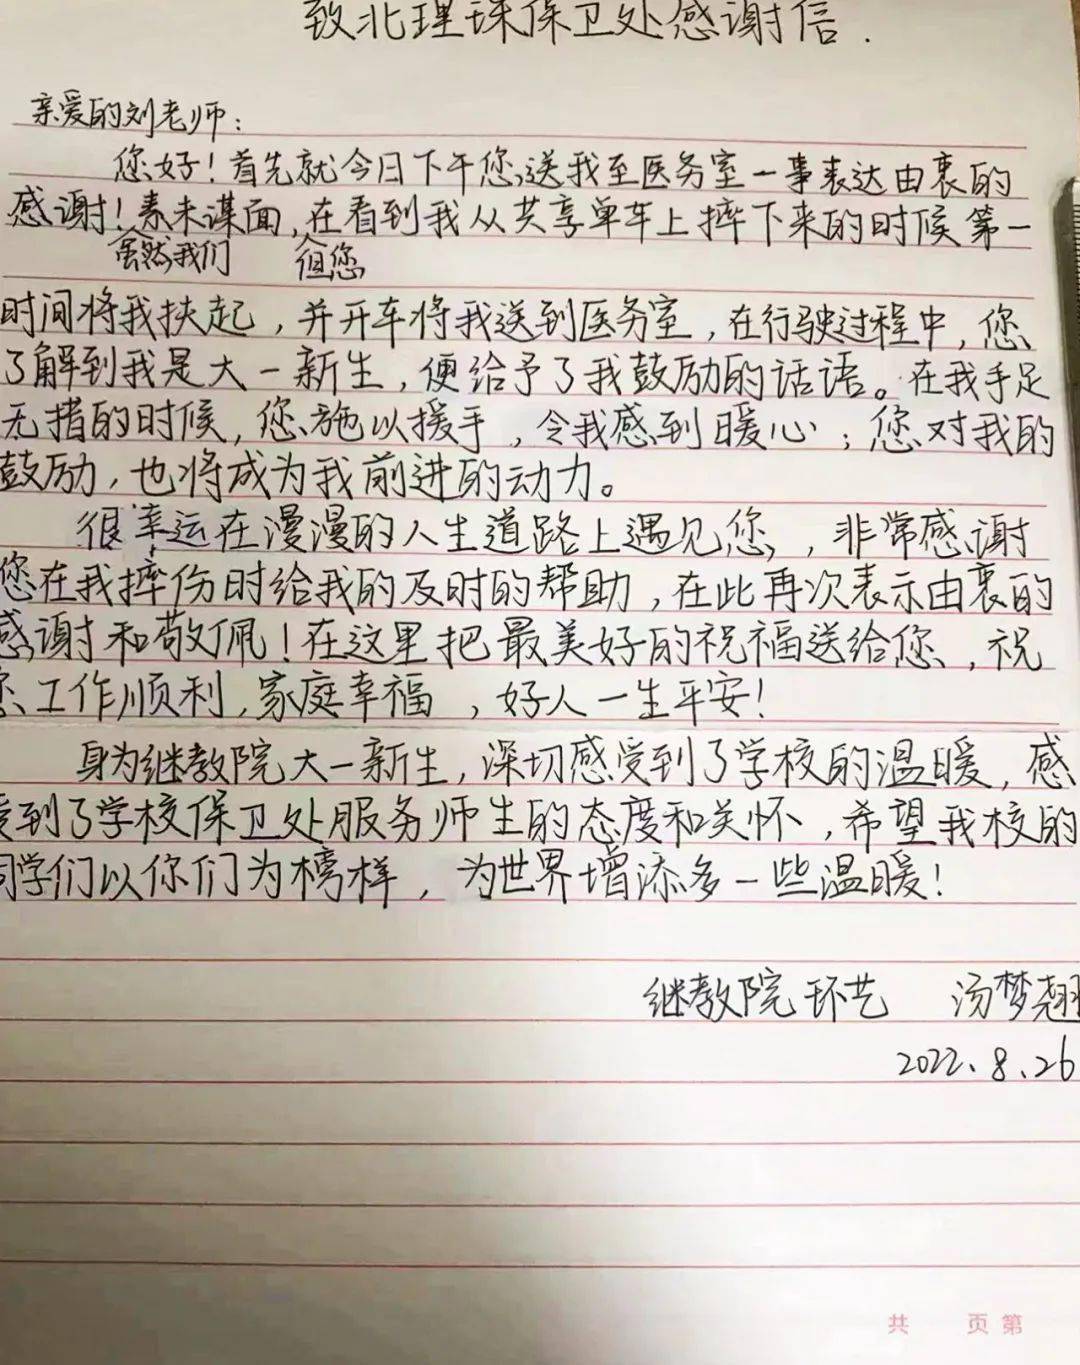 致北理珠保卫处感谢信.
亲爱的刘老师:
您好!首先就今日下午您送我至医务室一事表达由衷的
感谢!素未谋面,在看到我从共享单车上摔下来的时候第一
虽然我们 但您
时间将我扶起,并开车将我送到医务室,在行驶过程中,您
了解到我是大一新生,便给予了我鼓励的话语。在我手足
无措的时候,您施以援手,令我感到暖心;您对我的
鼓励,也将成为我前进的动力。
很幸运在漫漫的人生道路上遇见您,非常感谢
您在我摔伤时给我的及时的帮助,在此再次表示由衷的
感谢和敬佩!在这里把最美好的祝福送给您,祝
您工作顺利,家庭幸福,好人一生平安!
身为继教院大一新生,深切感受到了学校的温暖,感
受到了学校保卫处服务师生的态度和关怀,希望我校的
同学们以你们为榜样,为世界增添多一些温暖!
继教院环艺 汤梦翘
2022.8.26
共 页 第